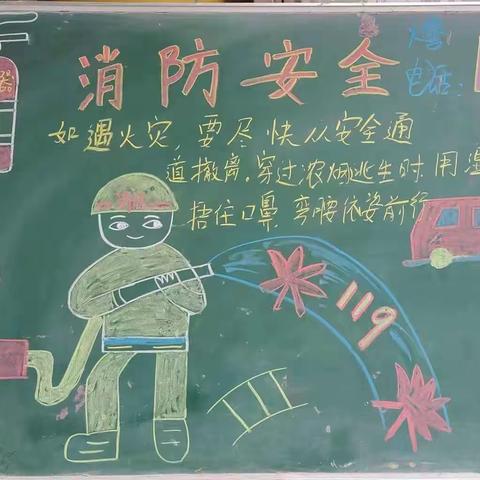 消防安全
火警
电话:
器
如遇火灾,要尽快从安全通
道撤离,穿过浓烟逃生时,用湿
捂住口鼻,弯腰依姿前行
119